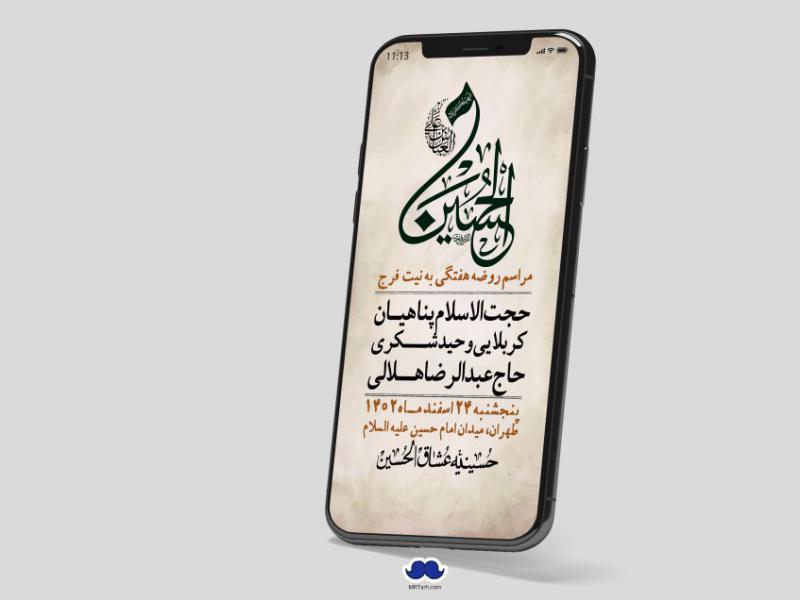 11:13
العباس بن علی
الحسین
مراسم روضه هفتگی به نیت فرج
حجت الاسلام پناهیان
کربلایی وحید شکری
حاج عبدالرضا هلالی
پنجشنبه ۲۴ اسفند ماه ۱۴۰۲
طهران، میدان امام حسین علیه السلام
حُسینیه عُشاق الحُسین
MRTarh.com